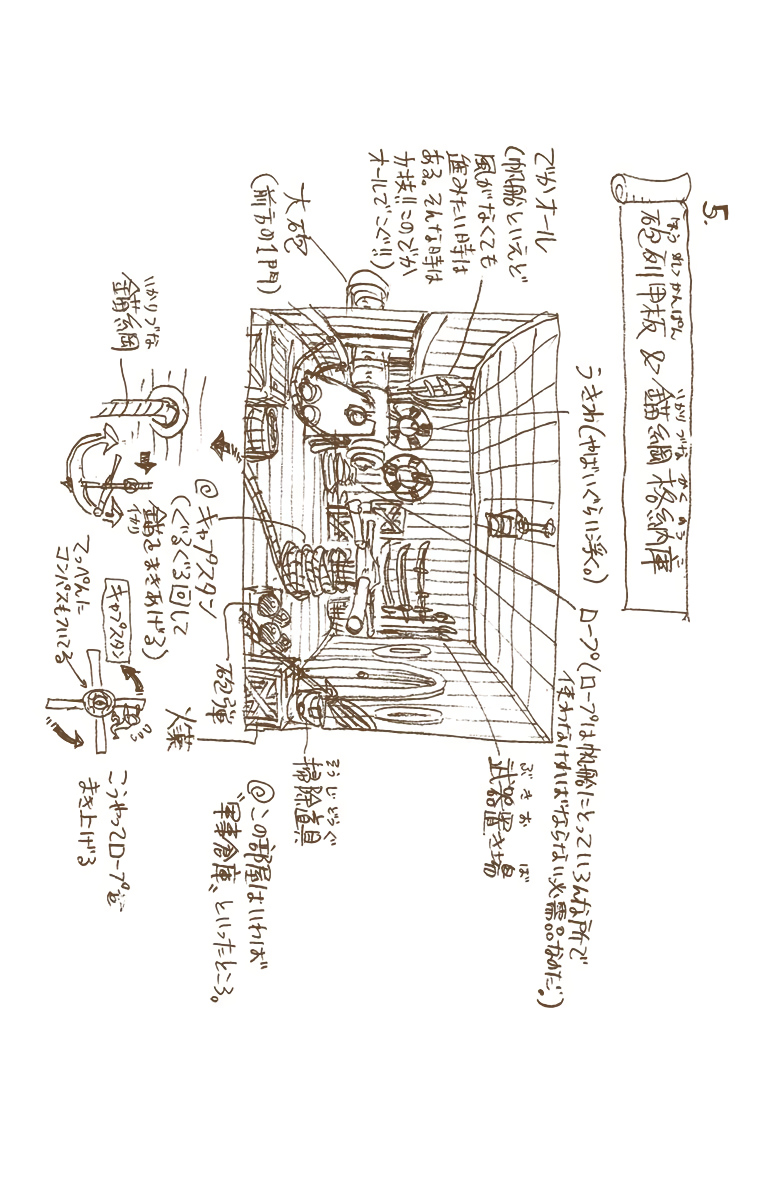 5.
砲列甲板 & 錨綱格納庫
ほうれつかんぱん
いかりづな かくのうこ
でかオール
(帆船といえど
風がなくても
進みたい時は
ある。そんな時は
力技!!このでか
オールでこぐ!!)
大砲
(前方の1門)
うきわ(やばいぐらい浮く。)
ロープ(ロープは帆船にとっていろんな所で
使わなければならない必需品なのだ。)
ぶきおきば
武器置き場
そうじどうぐ
掃除道具
◎この部屋はいわば
“軍事倉庫”といったところ。
いかりづな
錨綱
◎キャプスタン
(ぐるぐる回して
錨をまきあげる)
いかり
砲弾
火薬
キャプスタン
てっぺんに
コンパスもついてる
こうやってロープを
まき上げる